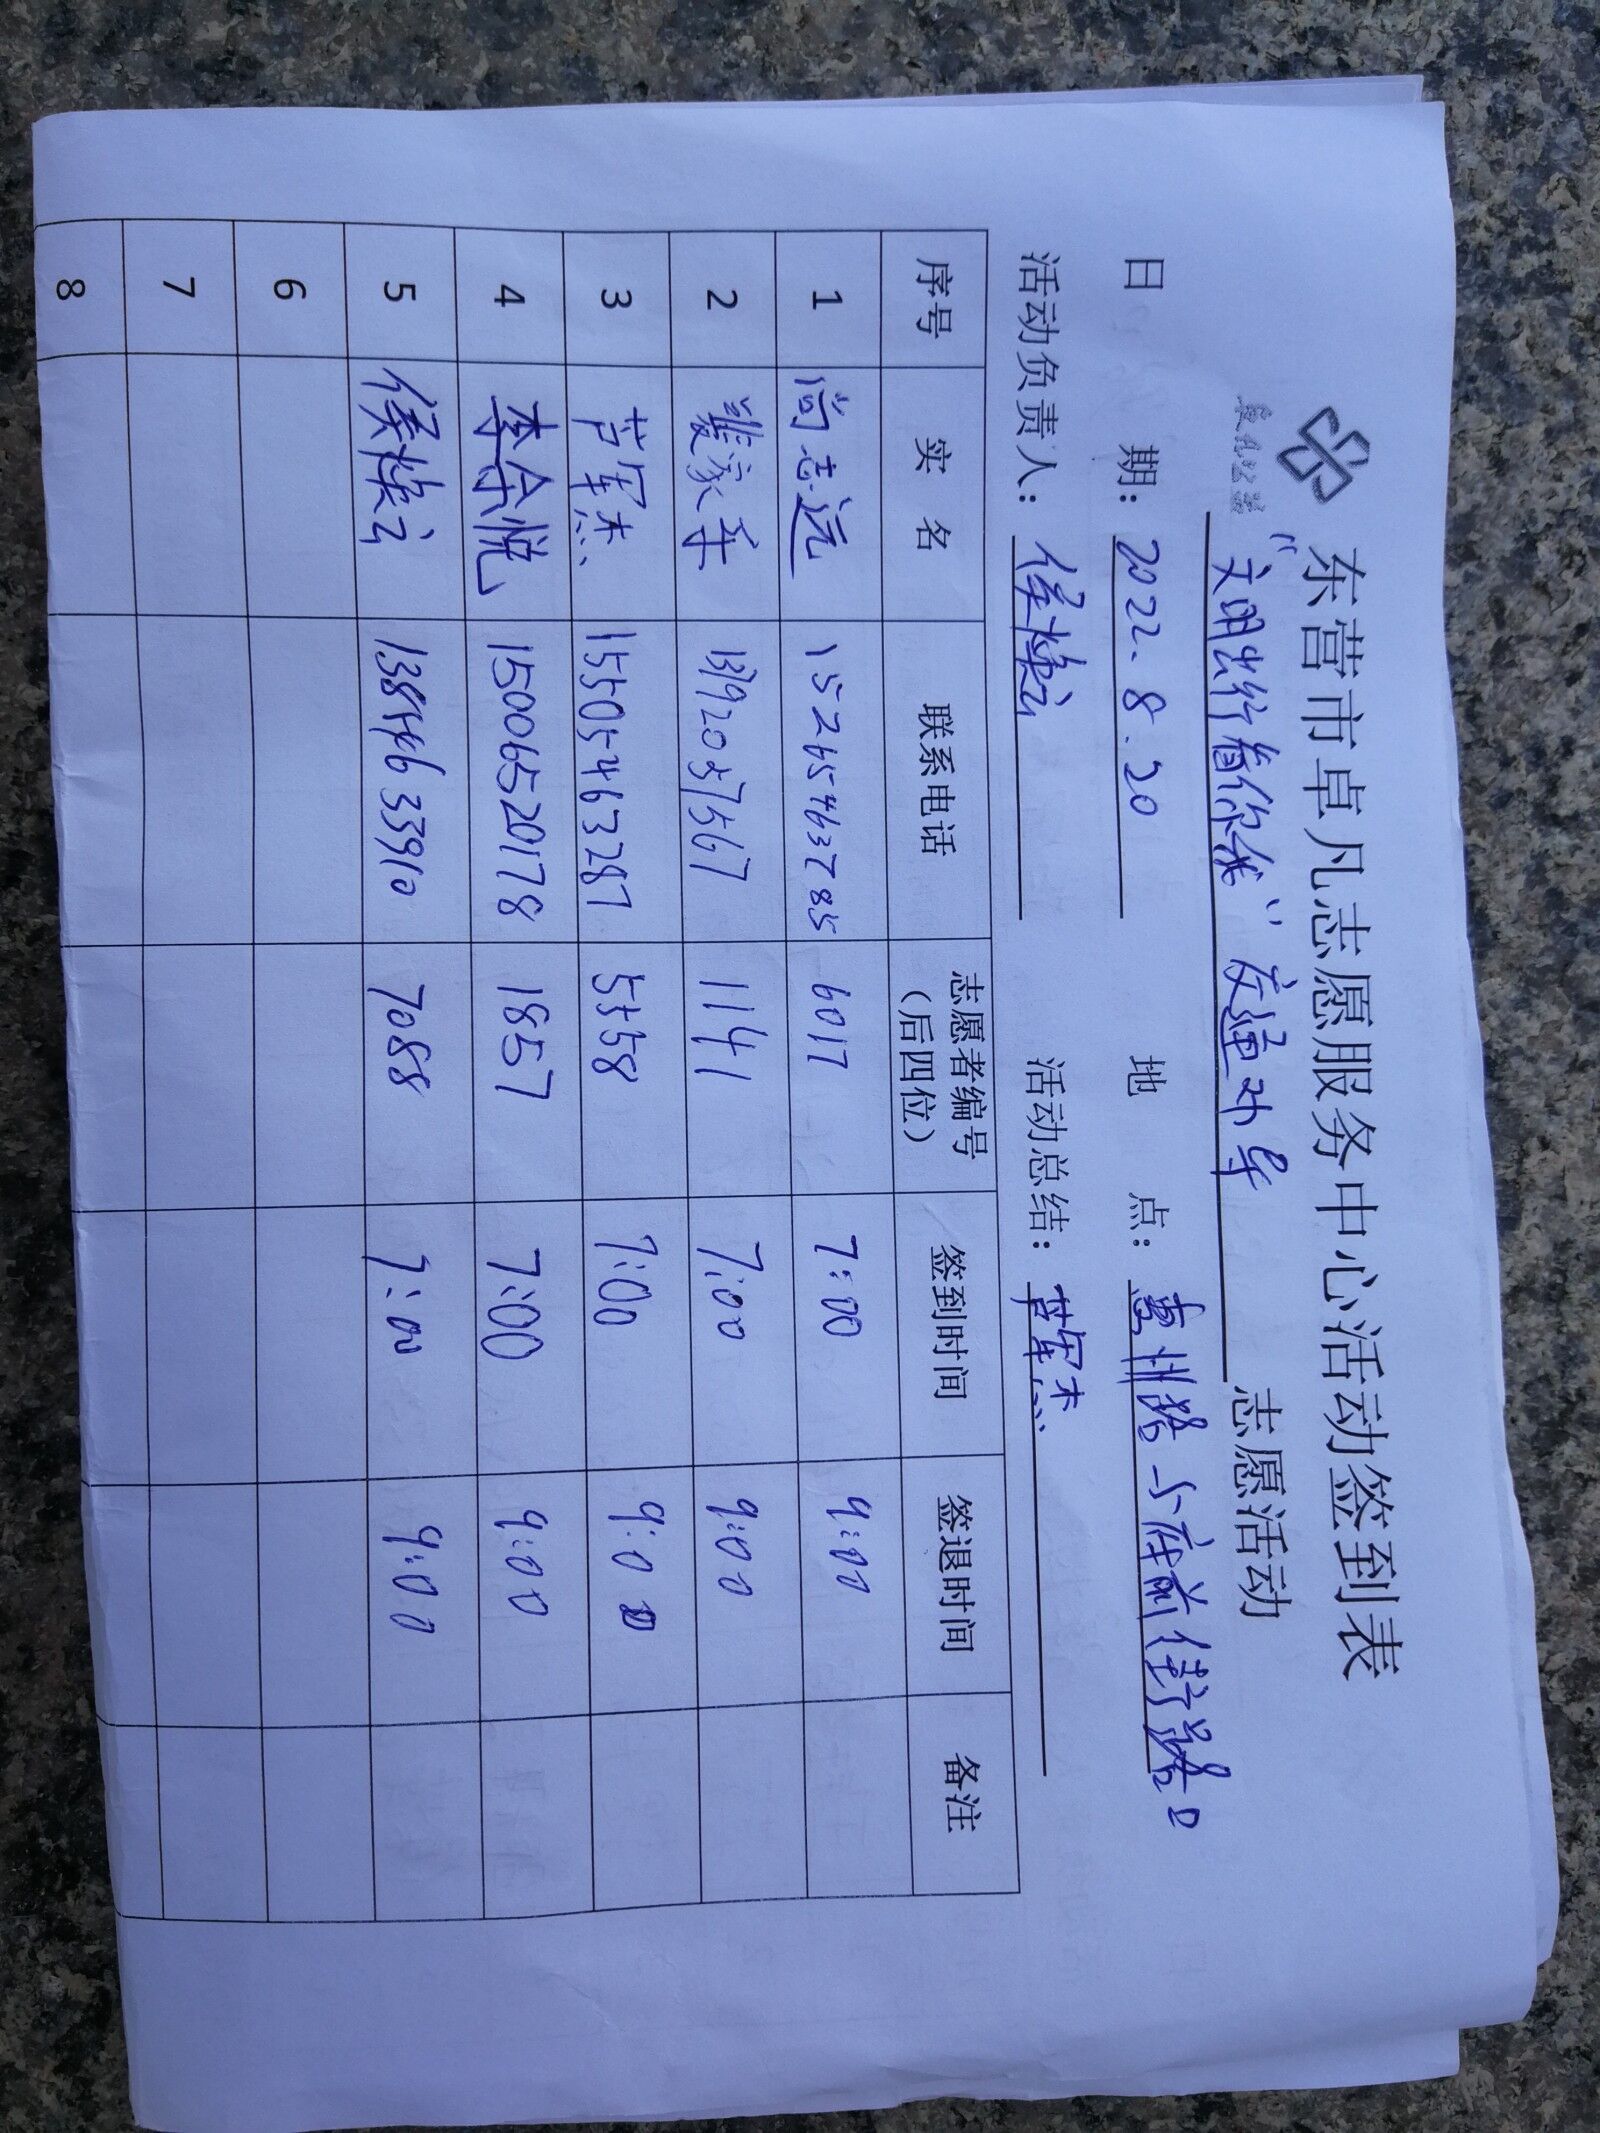 东营市卓凡志愿服务中心活动签到表
"文明出行看你我" 交通劝导 志愿活动
日 期: 2022.8.20 地 点: 惠州路与府前街路口
活动负责人: 侯焕云 活动总结: 芦军杰
序号 实 名 联系电话 志愿者编号(后四位) 签到时间 签退时间 备注
1 尚志远 15265463785 6017 7:00 9:00
2 家 1141 7:00 9:00
3 芦军杰 15505463287 5558 7:00 9:00
4 李余悦 15006520178 1857 7:00 9:00
5 侯焕云 7088 7:00 9:00
6
7
8